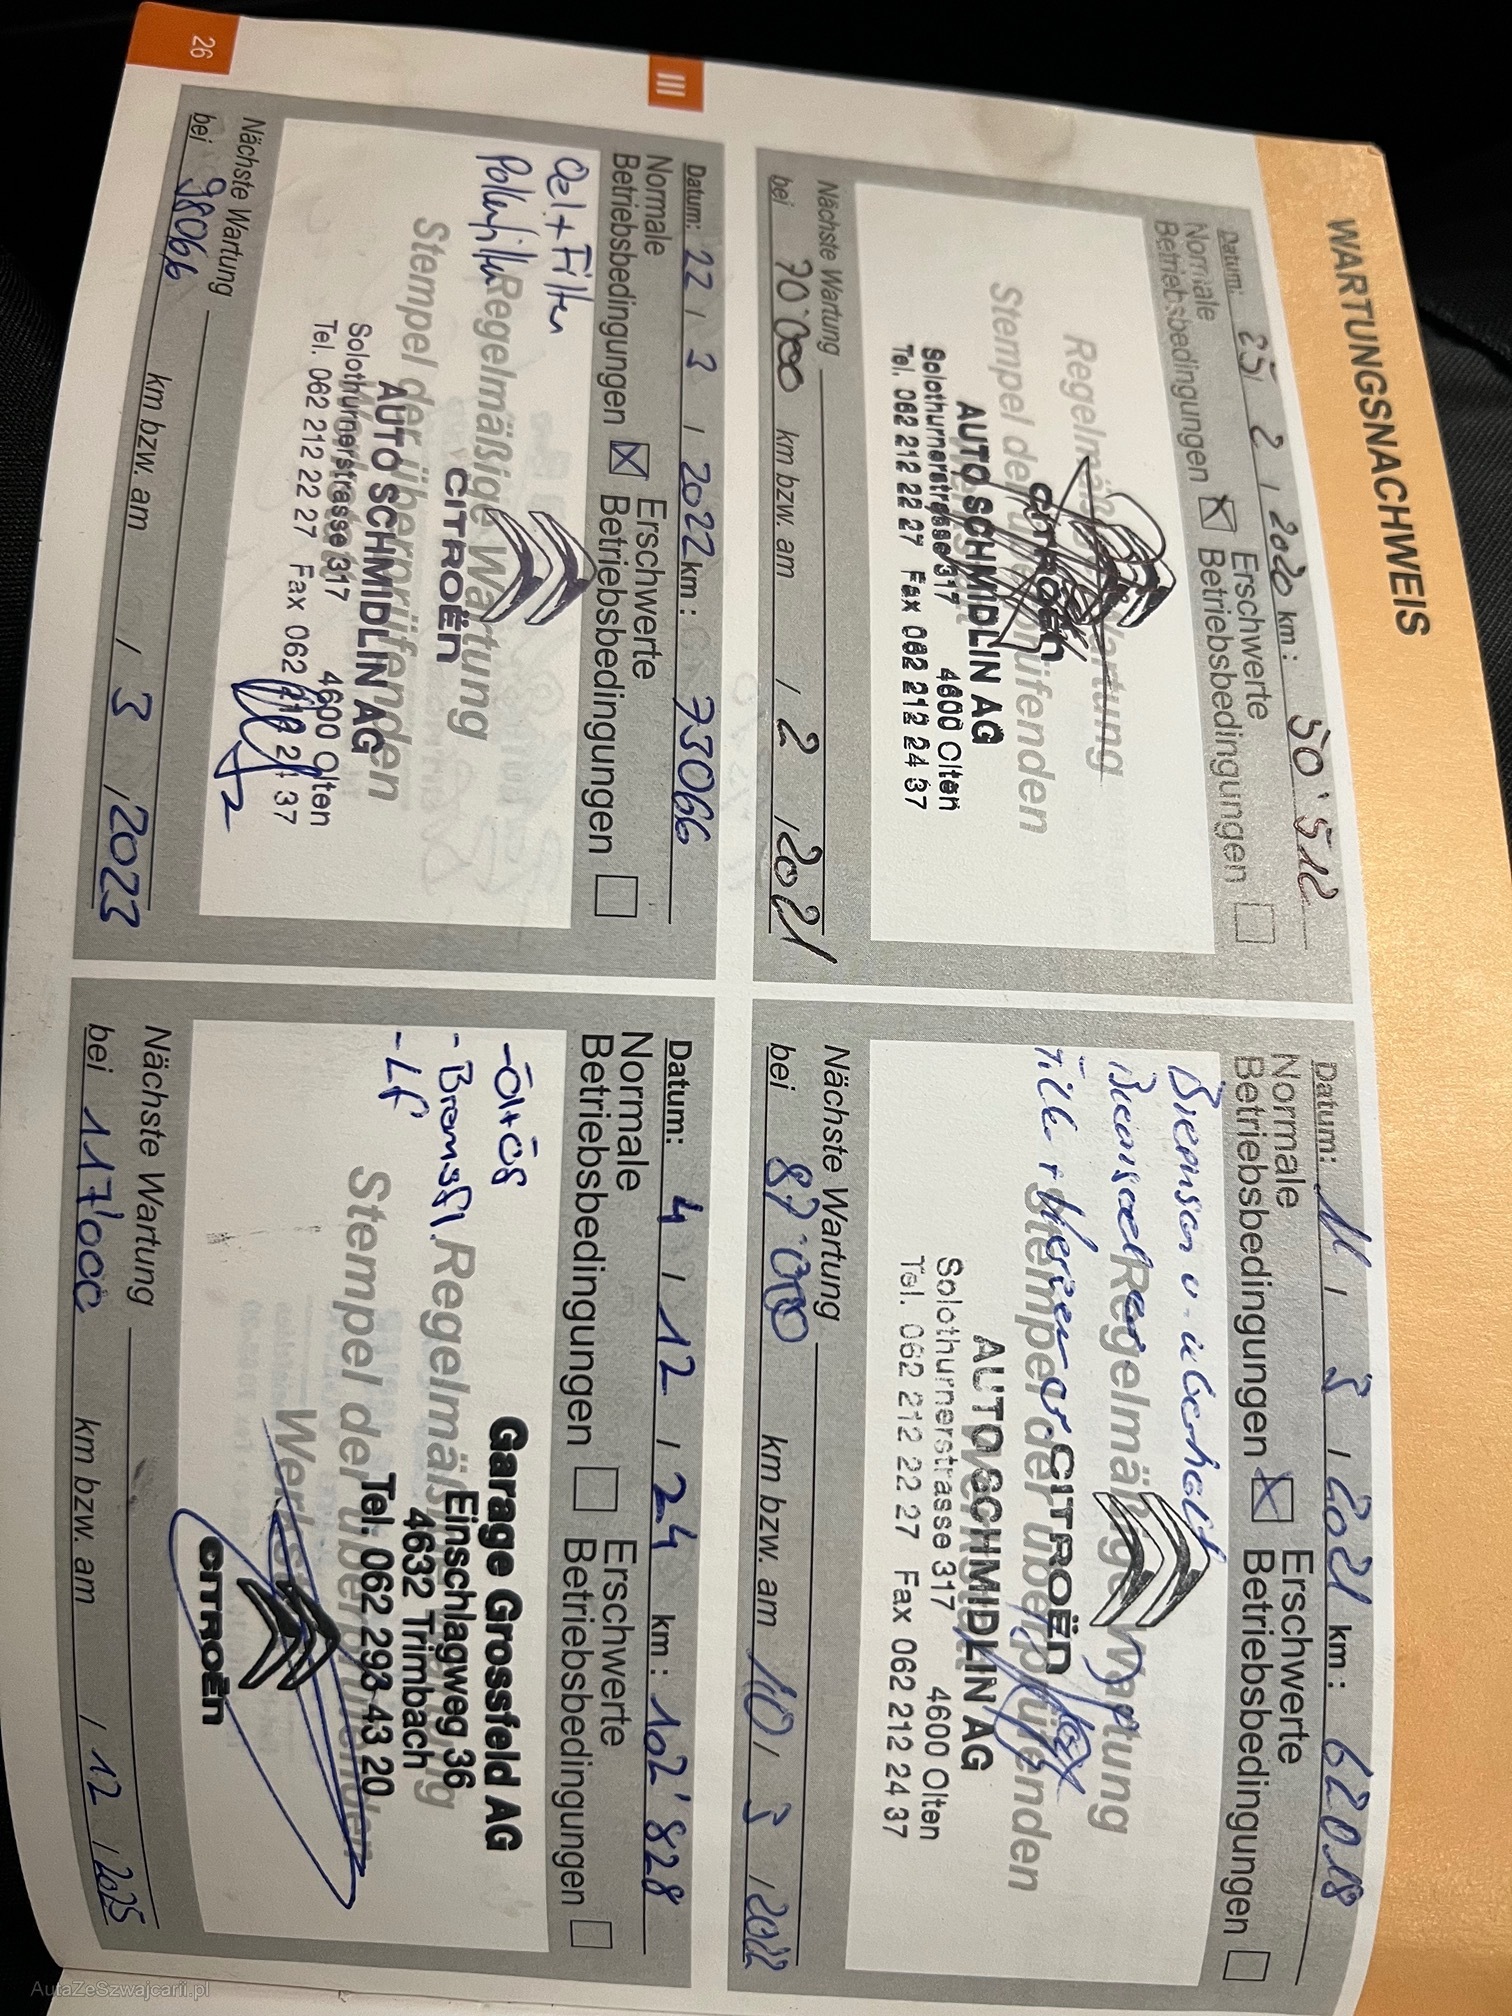 WARTUNGSNACHWEIS
Datum: 25 / 2 / 2020 km: 50'512
Normale Betriebsbedingungen ☒ Erschwerte Betriebsbedingungen ☐
Regelmäßige Wartung
Stempel der überprüfenden
CITROËN
AUTO SCHMIDLIN AG
Solothurnerstrasse 317 4600 Olten
Tel. 062 212 22 27 Fax 062 212 24 37
Nächste Wartung
bei 70'000 km bzw. am / 2 / 2021
Datum: 11 / 3 / 2021 km: 62018
Normale Betriebsbedingungen ☒ Erschwerte Betriebsbedingungen ☐
Bremsen v. überholt
Regelmäßige Wartung
Stempel der überprüfenden
CITROËN
AUTO SCHMIDLIN AG
Solothurnerstrasse 317 4600 Olten
Tel. 062 212 22 27 Fax 062 212 24 37
Nächste Wartung
bei 87'000 km bzw. am 10 / 3 / 2022
III
Datum: 22 / 3 / 2022 km: 73066
Normale Betriebsbedingungen ☒ Erschwerte Betriebsbedingungen ☐
Oel + Filter
Pollenfilter
Regelmäßige Wartung
Stempel der überprüfenden
CITROËN
AUTO SCHMIDLIN AG
Solothurnerstrasse 317 4600 Olten
Tel. 062 212 22 27 Fax 062 212 24 37
Nächste Wartung
bei 98066 km bzw. am / 3 / 2023
Datum: 4 / 12 / 24 km: 102'828
Normale Betriebsbedingungen ☐ Erschwerte Betriebsbedingungen ☐
- Öl + ÖF
- Bremsfl.
- LF
Regelmäßige Wartung
Stempel der überprüfenden
Werkstatt
Garage Grossfeld AG
Einschlagweg 36
4632 Trimbach
Tel. 062 293 43 20
CITROËN
Nächste Wartung
bei 117'000 km bzw. am / 12 / 2025
26
AutaZeSzwajcarii.pl